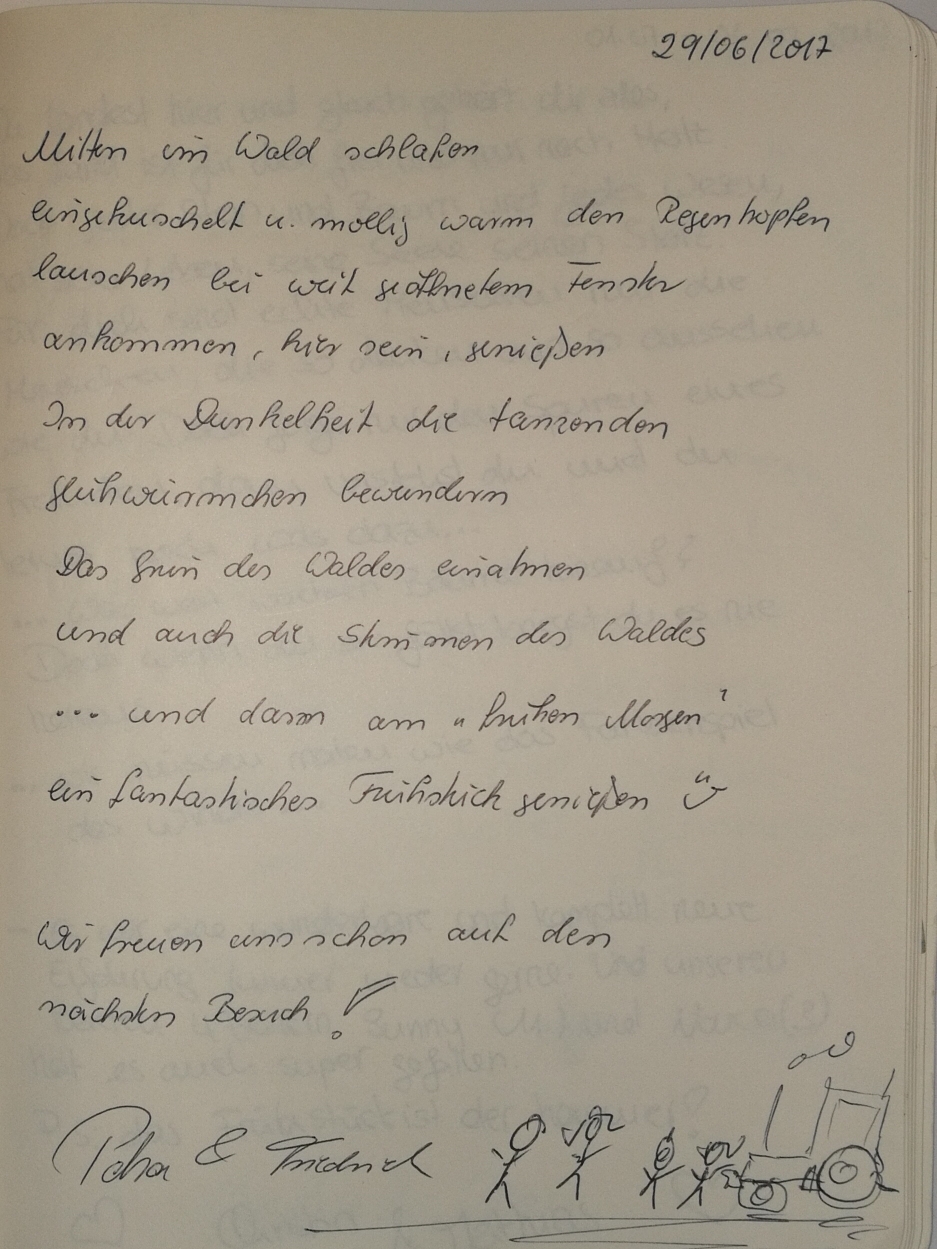 29/06/2017
Mitten im Wald schlafen
eingekuschelt u. mollig warm den Regentropfen
lauschen bei weit geöffnetem Fenster
ankommen, hier sein, genießen
In der Dunkelheit die tanzenden
glühwürmchen bewundern
Das grün des Waldes einatmen
und auch die Stimmen des Waldes
... und dann am "frühen Morgen"
ein fantastisches Frühstück genießen
Wir freuen uns schon auf den
nächsten Besuch!
Petra & Friedrich